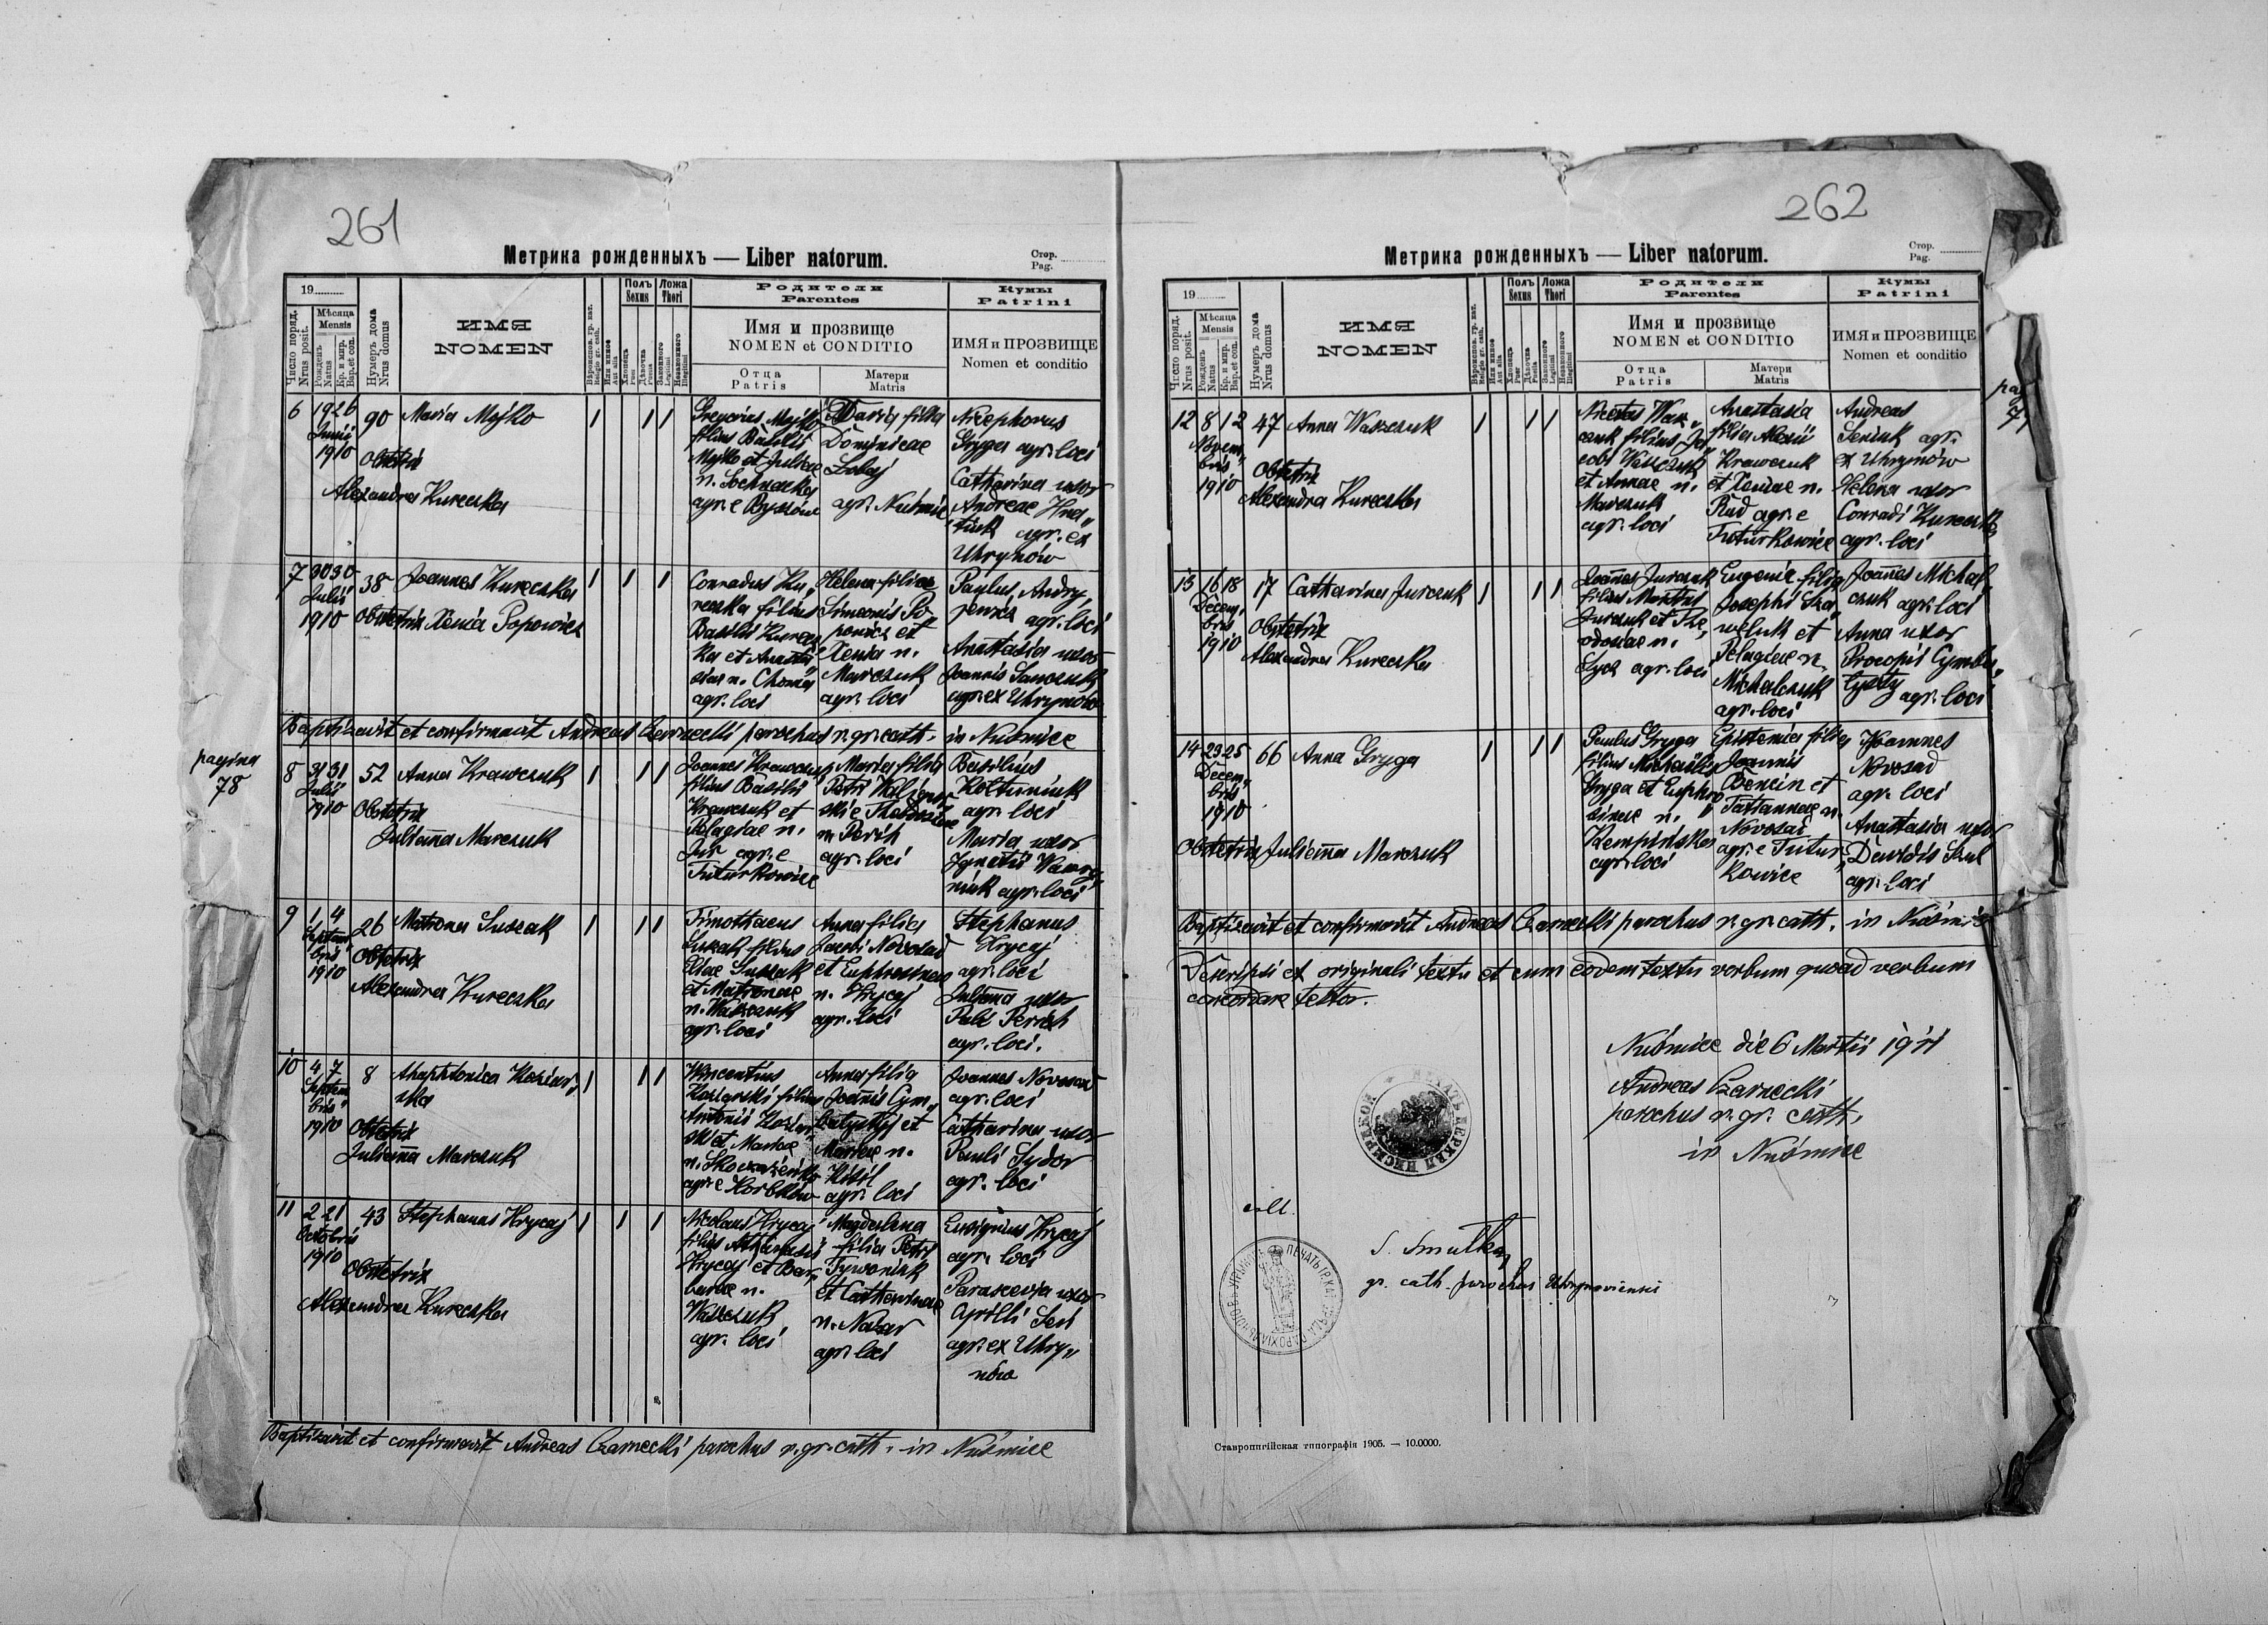 261
Метрика рожденныхъ — Liber natorum.
Стор.
Pag.
19
Число поряд.
Nrus posit.
Мѣсяца
Mensis
Рожденъ
Natus
Кр. и мир.
Bap. et con.
Нумеръ дома
Nrus domus
ИМЯ
NOMEN
Вѣроиспов. гр. кат.
Religio gr. cath.
Или инное
Aut alia
Полъ
Sexus
Хлопецъ
Puer
Дѣвочка
Puella
Ложа
Thori
Законного
Legitimi
Незаконного
Illegitimi
Родители
Parentes
Имя и прозвище
NOMEN et CONDITIO
Отца
Patris
Матери
Matris
Кумы
Patrini
ИМЯ и ПРОЗВИЩЕ
Nomen et conditio
6
19 26
Junii
1910
90
Maria Mojko
Obstetrix
Alexandra Kureczka
1 1 1
filius Basilii
et Juliae
agr. e
Maria filia
Dominicae
agr. Nuśmice
Nicephorus
Gryga agr. loci
Catharina uxor
Andreae Hna„
tiuk agr. ex
Uhrynów
7
30 30
Julii
1910
38
Joannes Kureczka
Obstetrix Xenia Popowicz
1 1 1
Conradus Ku„
reczka filius
Basilii Kurecz„
ka et Anasta„
siae n. Choma
agr. loci
Helena filia
Simeonis Po„
powicz et
Xenia n.
Marczuk
agr. loci
Paulus Andry„
agr. loci
Anastasia uxor
Joannis
agr. ex Uhrynów
Baptisavit et confirmavit Andreas Czarnecki parochus r. gr. cath. in Nuśmice
pagina
78
8
31 31
Julii
1910
52
Anna Krawczuk
Obstetrix
Julianna Marczuk
1 1 1
Joannes Krawczuk
filius Basilii
Krawczuk et
Pelagiae n.
agr. e
Tuturkowice
Maria filia
Petri
agr. loci
Basilius
Koltuniuk
agr. loci
Maria uxor
Ignatii
agr. loci
9
1 4
Septem„
bris
1910
26
Matrona Suszak
Obstetrix
Alexandra Kureczka
1 1 1
Timothaeus
Suszak filius
Eliae Suszak
et Matronae
n. Waszczuk
agr. loci
Anna filia
Jacobi Novosad
et Euphrosinae
n. Hrycaj
agr. loci
Stephanus
Hrycaj
agr. loci
Julianna uxor
Pauli
agr. loci.
10
4 7
Septem„
bris
1910
8
Obstetrix
Julianna Marczuk
1 1 1
Vincentius
filius
Antonii
et Mariae
agr. e Horbków
Anna filia
Joannis Cym„
et
Mariae n.
agr. loci
Joannes Novosad
agr. loci
Catharina uxor
Pauli Sydor
agr. loci
11
2 21
Octobris
1910
43
Stephanus Hrycaj
Obstetrix
Alexandra Kureczka
1 1 1
Nicolaus Hrycaj
filius Athanasii
Hrycaj et Bar„
barae n.
Waszczuk
agr. loci
Magdalena
filia Petri
Tywoniuk
et Catharinae
n. Nazar
agr. loci
Hrycaj
agr. loci
Parascevia uxor
Cyrilli
agr. ex Uhry„
nów
Baptisavit et confirmavit Andreas Czarnecki parochus r. gr. cath. in Nuśmice
262
Метрика рожденныхъ — Liber natorum.
Стор.
Pag.
19
Число поряд.
Nrus posit.
Мѣсяца
Mensis
Рожденъ
Natus
Кр. и мир.
Bap. et con.
Нумеръ дома
Nrus domus
ИМЯ
NOMEN
Вѣроиспов. гр. кат.
Religio gr. cath.
Или инное
Aut alia
Полъ
Sexus
Хлопецъ
Puer
Дѣвочка
Puella
Ложа
Thori
Законного
Legitimi
Незаконного
Illegitimi
Родители
Parentes
Имя и прозвище
NOMEN et CONDITIO
Отца
Patris
Матери
Matris
Кумы
Patrini
ИМЯ и ПРОЗВИЩЕ
Nomen et conditio
12
8 12
Novem„
bris
1910
47
Anna Waszczuk
Obstetrix
Alexandra Kureczka
1 1 1
Nicetas Wasz„
czuk filius Ja„
cobi Waszczuk
et Annae n.
Marczuk
agr. loci
Anastasia
filia Alexii
Krawczuk
et Xeniae n.
Rud agr. e
Tuturkowice
Andreas
Seniuk agr.
ex Uhrynów
Helena uxor
Conradi Kureczka
agr. loci
13
16 18
Decem„
bris
1910
17
Catharina Jurczuk
Obstetrix
Alexandra Kureczka
1 1 1
Joannes Jurczuk
filius Martini
Jurczuk et The„
odosiae n.
agr. loci
Eugenia filia
Josephi Sza„
weluk et
Pelagiae n.
Michalczuk
agr. loci
Joannes Michal„
czuk agr. loci
Anna uxor
Procopii Cymba„
agr. loci
14
23 25
Decem„
bris
1910
66
Anna Gryga
Obstetrix Julianna Marczuk
1 1 1
Paulus Gryga
filius Michaelis
Gryga et Euphro„
sinae n.
Kempińska
agr. loci
Epistemia filia
Joannis
Bencin et
Tattannae n.
Novosad
agr. e Tutur„
kowice
Joannes
Novosad
agr. loci
Anastasia uxor
Davidis
agr. loci
Baptisavit et confirmavit Andreas Czarnecki parochus r. gr. cath. in Nuśmice
Descripsi ex originali textu et cum eodem textu verbum quoad verbum
concordare testor.
Nuśmice die 6 Martii 1911
Andreas Czarnecki
parochus r. gr. cath.
in Nuśmice
coll.
S. Smulka
gr. cath. parochus Uhrynoviensis
Ставропигійская типографія 1905. — 10.0000.